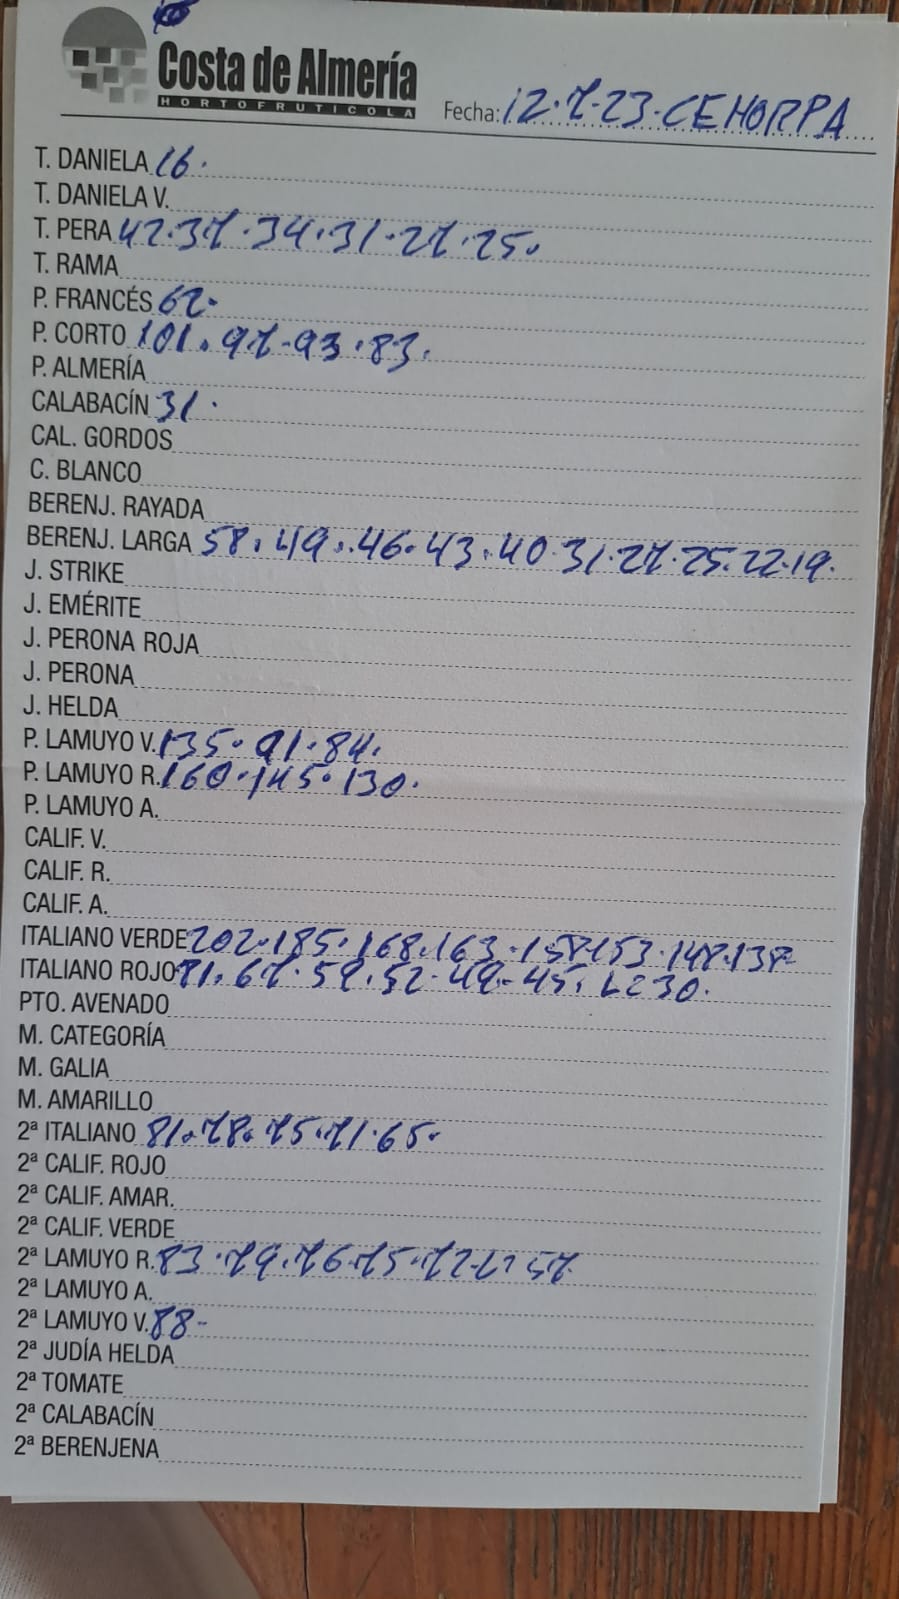 Costa de Almería
HORTOFRUTICOLA
Fecha: 12.7.23. CEHORPA
T. DANIELA 16.
T. DANIELA V.
T. PERA 42.37.34.31.27.25.
T. RAMA
P. FRANCÉS 62.
P. CORTO 101.97.93.83.
P. ALMERÍA
CALABACÍN 31.
CAL. GORDOS
C. BLANCO
BERENJ. RAYADA
BERENJ. LARGA 58.49.46.43.40.31.27.25.22.19.
J. STRIKE
J. EMÉRITE
J. PERONA ROJA
J. PERONA
J. HELDA
P. LAMUYO V. 135.91.84.
P. LAMUYO R. 160.145.130.
P. LAMUYO A.
CALIF. V.
CALIF. R.
CALIF. A.
ITALIANO VERDE 202.185.168.163.158.153.148.138-
ITALIANO ROJO 81.67.59.52.49-45. 30.
PTO. AVENADO
M. CATEGORÍA
M. GALIA
M. AMARILLO
2ª ITALIANO 81.78.75.71.65.
2ª CALIF. ROJO
2ª CALIF. AMAR.
2ª CALIF. VERDE
2ª LAMUYO R. 83.79.76.75.72. 57.
2ª LAMUYO A.
2ª LAMUYO V. 88-
2ª JUDÍA HELDA
2ª TOMATE
2ª CALABACÍN
2ª BERENJENA